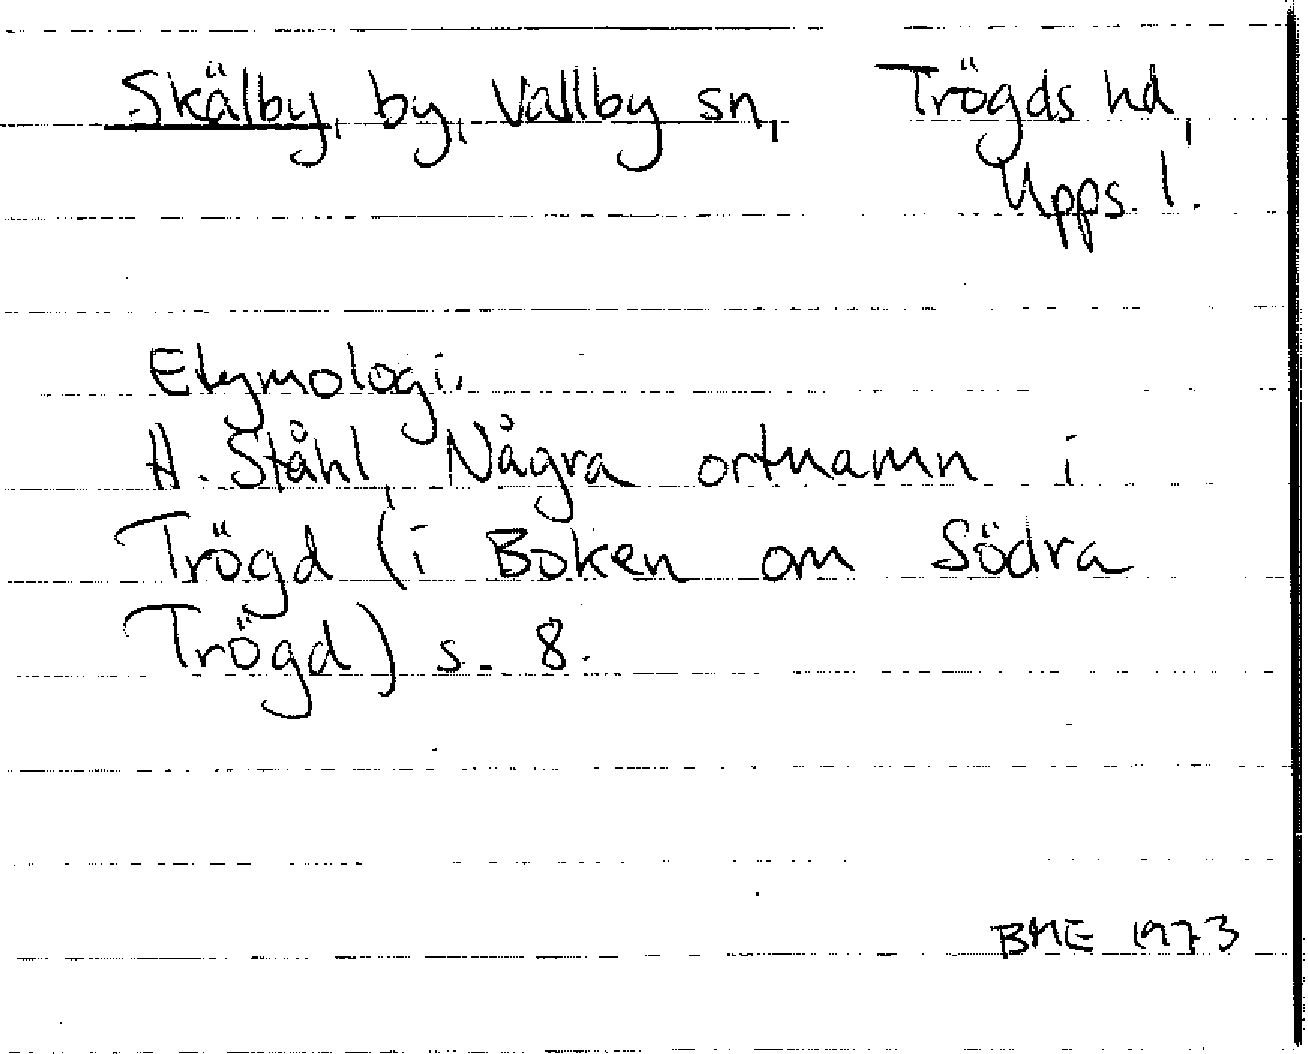 Skälby, by, Vallby sn, Trögds hd,
Upps. l.
Etymologi.
H. Ståhl, Några ortnamn i
Trögd (i Boken om Södra
Trögd) s. 8.
BME 1973